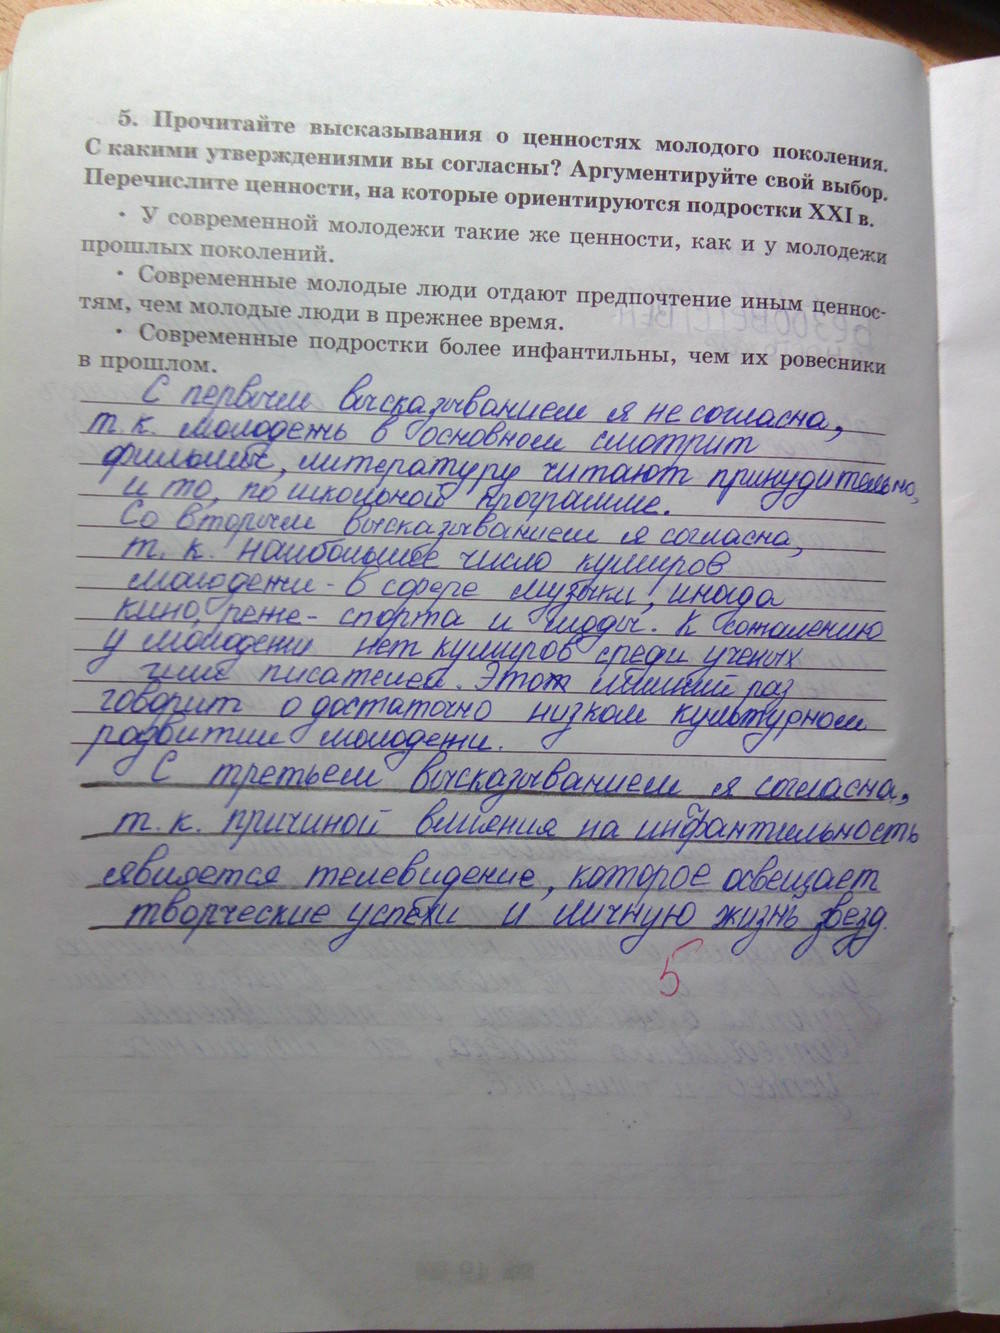 5. Прочитайте высказывания о ценностях молодого поколения.
С какими утверждениями вы согласны? Аргументируйте свой выбор.
Перечислите ценности, на которые ориентируются подростки XXI в.
• У современной молодежи такие же ценности, как и у молодежи
прошлых поколений.
• Современные молодые люди отдают предпочтение иным ценнос-
тям, чем молодые люди в прежнее время.
• Современные подростки более инфантильны, чем их ровесники
в прошлом.
С первым высказыванием я не согласна,
т.к. молодежь в основном смотрит
фильмы, литературу читают принудительно,
и то, по школьной программе.
Со вторым высказыванием я согласна,
т.к. наибольшее число кумиров
молодежи - в сфере музыки, иногда
кино, реже - спорта и моды. К сожалению
у молодежи нет кумиров среди ученых
или писателей. Этот лишний раз
говорит о достаточно низком культурном
развитии молодежи.
С третьем высказыванием я согласна,
т.к. причиной влияния на инфантильность
является телевидение, которое освещает
творческие успехи и личную жизнь звезд.
5